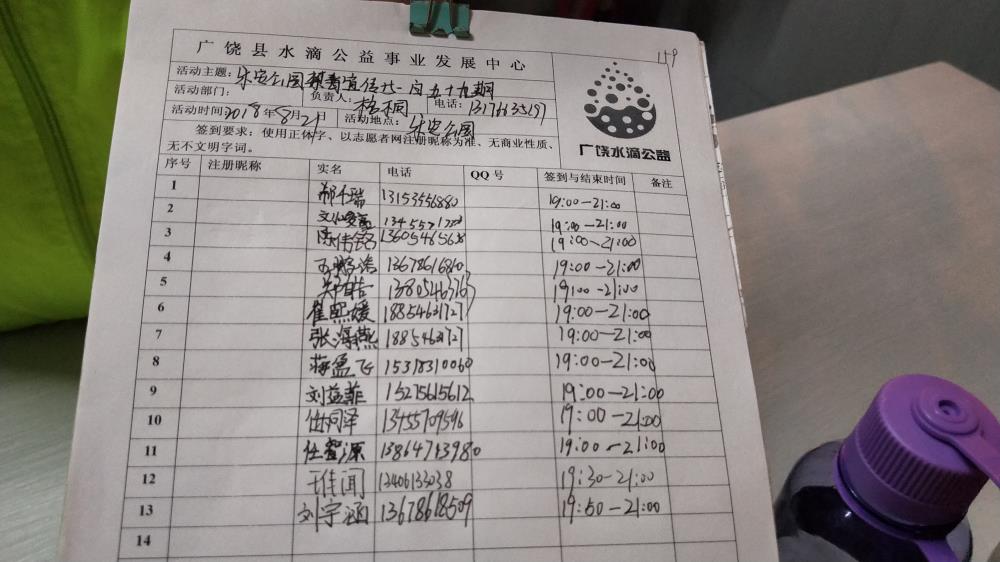 159
广饶县水滴公益事业发展中心
活动主题：乐安公园禁毒宣传 五十九期
活动部门： 负责人：梧桐 电话：13176635197
活动时间2018年8月21 活动地点：乐安公园
签到要求：使用正体字、以志愿者网注册昵称为准、无商业性质、
无不文明字词。
广饶水滴公益
序号 注册昵称 实名 电话 QQ号 签到与结束时间 备注
1 13153556880 19:00—21:00
2 19:00—21:00
3 陈伟铭 19:00—21:00
4 13678616810 19:00—21:00
5 19:00—21:00
6 崔熙媛 18854631727 19:00—21:00
7 张海燕 18854631727 19:00—21:00
8 蒋盈飞 15318310060 19:00—21:00
9 刘益菲 15275615612 19:00—21:00
10 任桐泽 13455709596 19:00—21:00
11 任智源 13864713980 19:00—21:00
12 13406133038 19:30—21:00
13 刘宇涵 13678618509 19:50—21:00
14